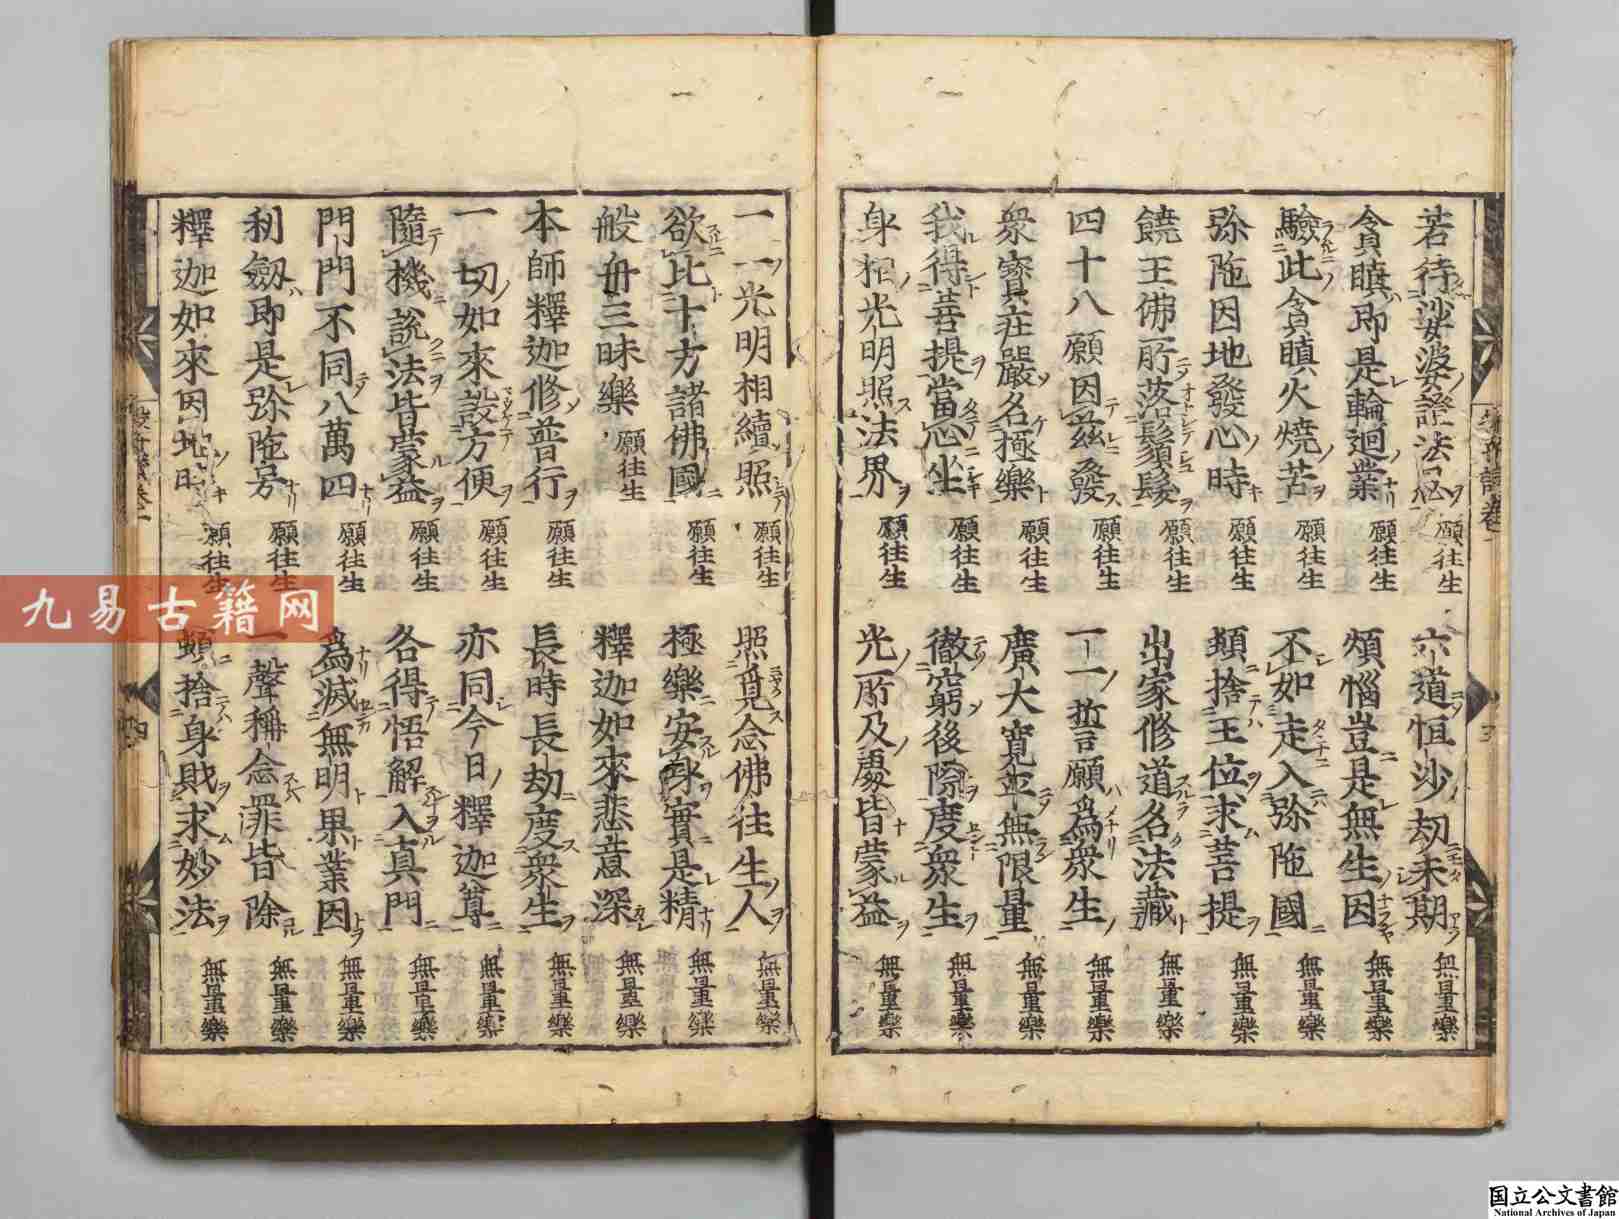 若待娑婆證法忍 願往生 六道恒沙劫未期 無量樂
貪瞋即是輪迴業 願往生 煩惱豈是無生因 無量樂
驗此貪瞋火燒苦 願往生 不如走入弥陁國 無量樂
弥陁因地發心時 願往生 頓捨王位求菩提 無量樂
饒王佛所落鬚髮 願往生 出家修道名法藏 無量樂
四十八願因茲發 願往生 一一誓願爲衆生 無量樂
衆寶莊嚴名極樂 願往生 廣大寬平無限量 無量樂
我得菩提當心坐 願往生 徹窮後際度衆生 無量樂
身相光明照法界 願往生 光所及處皆蒙益 無量樂
一一光明相續照 願往生 照覓念佛往生人 無量樂
欲比十方諸佛國 願往生 極樂安身實是精 無量樂
般舟三昧樂 願往生 釋迦如來悲意深 無量樂
本師釋迦修普行 願往生 長時長劫度衆生 無量樂
一切如來設方便 願往生 亦同今日釋迦尊 無量樂
隨機說法皆蒙益 願往生 各得悟解入真門 無量樂
門門不同八萬四 願往生 爲滅無明果業因 無量樂
利劔即是弥陁号 願往生 一聲稱念罪皆除 無量樂
釋迦如來因地時 願往生 頓捨身財求妙法 無量樂
四
九易古籍网
国立公文書館
National Archives of Japan